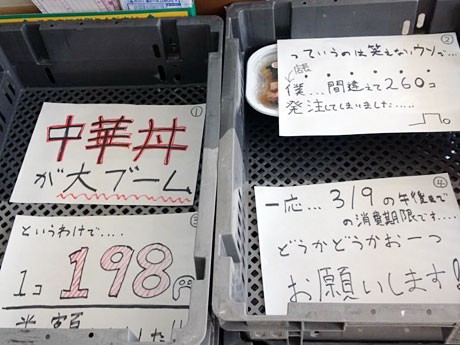 ①
中華丼
が大ブーム
②
っていうのは笑えないウソで…
店長
僕…間違えて260コ
発注してしまいました.....
③
というわけで....
1コ 198円
半額 した!!
④
一応... 3/9の午後まで
の消費期限です....
どうかどうかお一つ
お願いします!